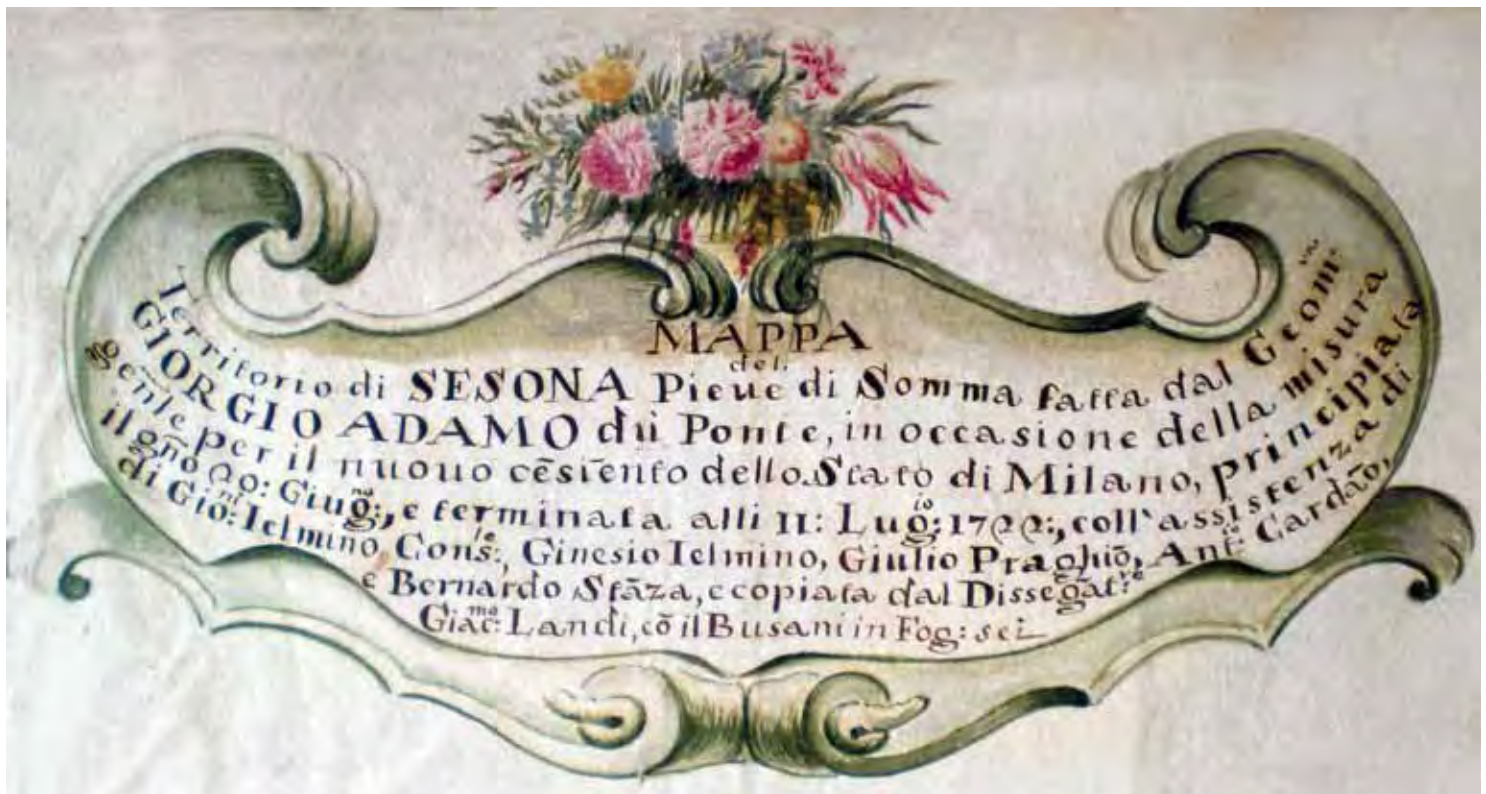 MAPPA
del
Territorio di SESONA Pieue di Somma fatta dal Geom:
GIORGIO ADAMO dü Ponte, in occasione della misura
gen̄le per il nuouo cēsiēnto dello Stato di Milano, principiata
il gño 22: Giug:no, e terminata alli 11: Lug:io 1722:, coll'assistenza di
di Gio:ni Ielmino Cons:le, Ginesio Ielmino, Giulio Ant:io Cardāo,
e Bernardo Stāza, e copiata dal Dissegat:re
Giac:mo Landi, cō il Busani in Fog: sei